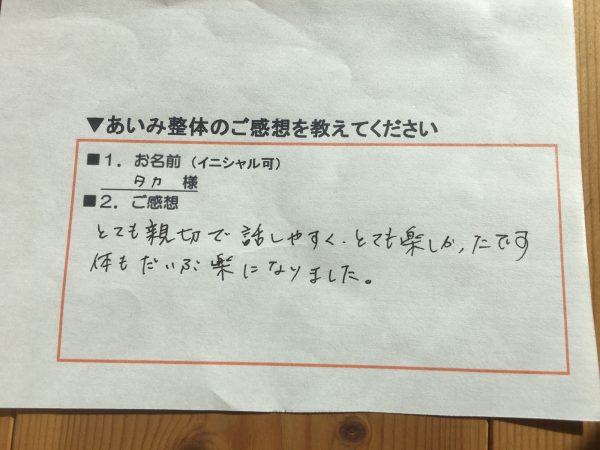 ▼あいみ整体のご感想を教えてください
■1．お名前（イニシャル可）
タカ　様
■2．ご感想
とても親切で話しやすく、とても楽しかったです
体もだいぶ楽になりました。